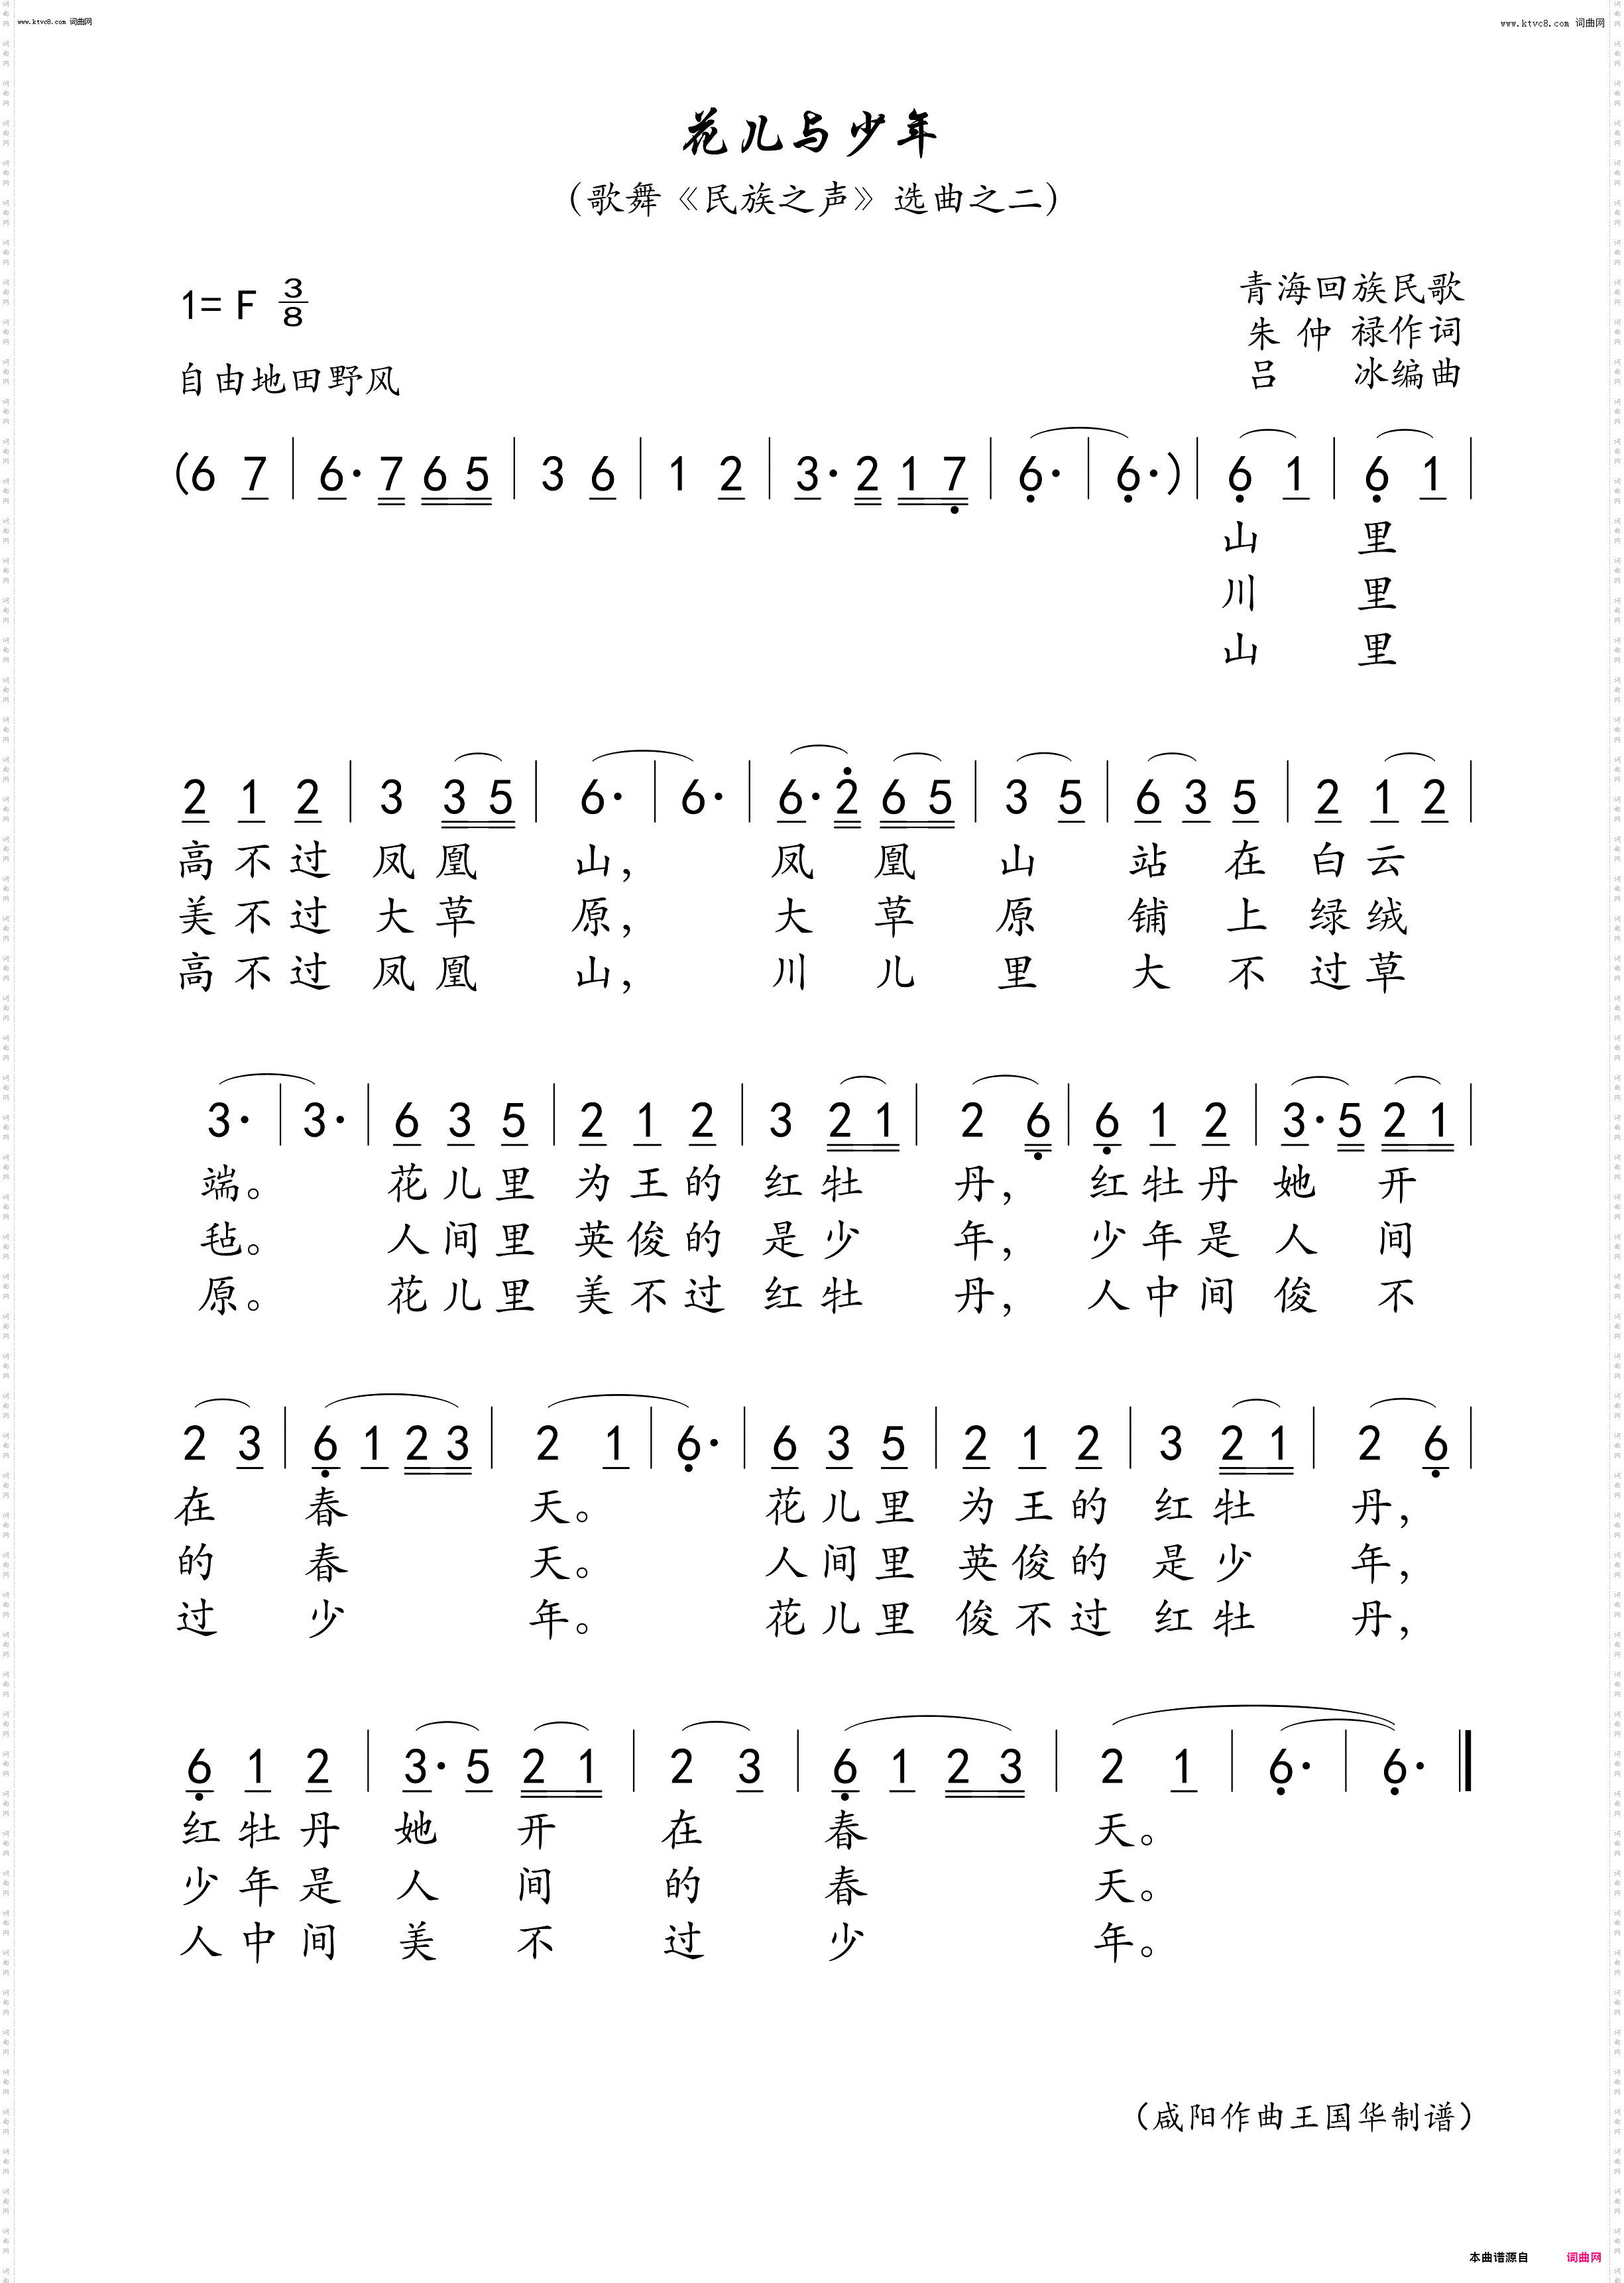 www.ktvc8.com 词曲网
www.ktvc8.com 词曲网
花儿与少年
（歌舞《民族之声》选曲之二）
1= F 3/8
青海回族民歌
朱 仲 禄作词
吕 冰编曲
自由地田野风
(6 7 | 6· 7 6 5 | 3 6 | 1 2 | 3· 2 1 7 | 6· | 6·) | 6 1 | 6 1 |
山 里
川 里
山 里
2 1 2 | 3 3 5 | 6· | 6· | 6· 2 6 5 | 3 5 | 6 3 5 | 2 1 2 |
高 不 过 凤 凰 山， 凤 凰 山 站 在 白 云
美 不 过 大 草 原， 大 草 原 铺 上 绿 绒
高 不 过 凤 凰 山， 川 儿 里 大 不 过 草
3· | 3· | 6 3 5 | 2 1 2 | 3 2 1 | 2 6 | 6 1 2 | 3· 5 2 1 |
端。 花 儿 里 为 王 的 红 牡 丹， 红 牡 丹 她 开
毡。 人 间 里 英 俊 的 是 少 年， 少 年 是 人 间
原。 花 儿 里 美 不 过 红 牡 丹， 人 中 间 俊 不
2 3 | 6 1 2 3 | 2 1 | 6· | 6 3 5 | 2 1 2 | 3 2 1 | 2 6 |
在 春 天。 花 儿 里 为 王 的 红 牡 丹，
的 春 天。 人 间 里 英 俊 的 是 少 年，
过 少 年。 花 儿 里 俊 不 过 红 牡 丹，
6 1 2 | 3· 5 2 1 | 2 3 | 6 1 2 3 | 2 1 | 6· | 6· ‖
红 牡 丹 她 开 在 春 天。
少 年 是 人 间 的 春 天。
人 中 间 美 不 过 少 年。
（咸阳作曲王国华制谱）
本曲谱源自 词曲网